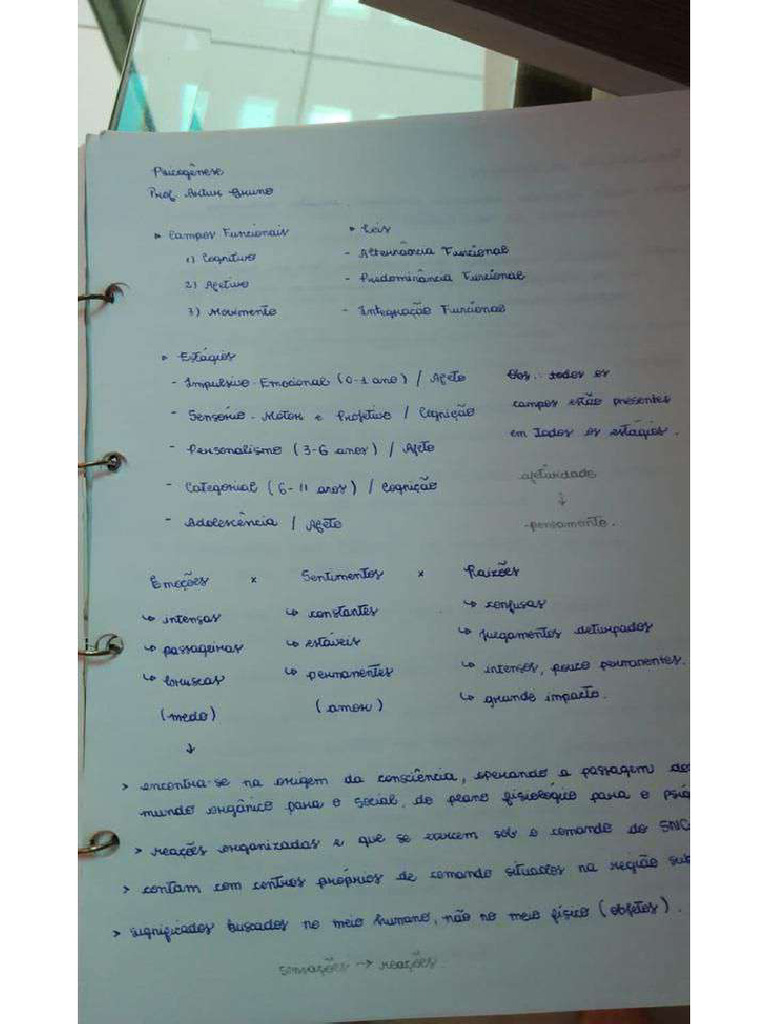 Psicogênese
Prof. Arthur Bruno
▸ Campos Funcionais
1) Cognitivo
2) Afetivo
3) Movimento
▸ Leis
- Alternância Funcional
- Predominância Funcional
- Integração Funcional
▸ Estágios
- Impulsivo-Emocional (0-1 ano) / Afeto
- Sensório-Motor e Projetivo / Cognição
- Personalismo (3-6 anos) / Afeto
- Categorial (6-11 anos) / Cognição
- Adolescência / Afeto
Obs: todos os
campos estão presentes
em todos os estágios.
afetividade
↓
pensamento.
Emoções x Sentimentos x Paixões
↳ intensas
↳ passageiras
↳ bruscas
(medo)
↓
↳ constantes
↳ estáveis
↳ permanentes
(amor)
↳ confusas
↳ julgamentos deturpados
↳ intensos, pouco permanentes.
↳ grande impacto.
> encontra-se na origem da consciência, operando a passagem do
mundo orgânico para o social, do plano fisiológico para o
> reações organizadas e que se exercem sob o comando do SNC
> contam com centros próprios de comando situados na região
> significados buscados no meio humano, não no meio físico (objetos).
sensações → reações.